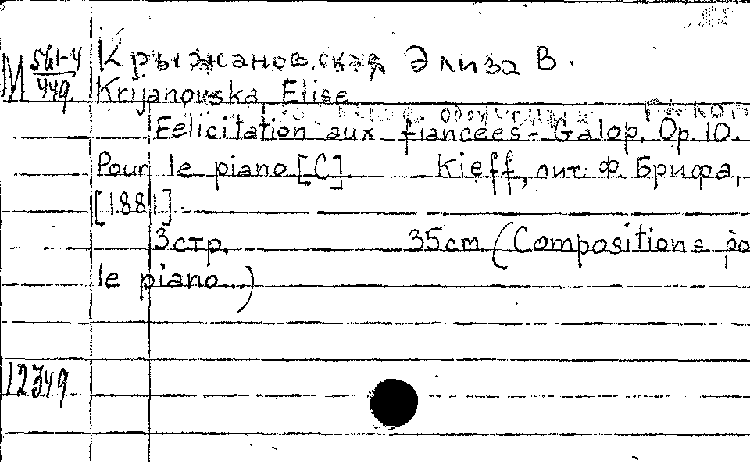 М 561-4/449.
Крыжановская Элиза В.
Krijanovska, Elise
Félicitation aux fiancées - Galop. Op. 10.
Pour le piano [C]. Kieff, лит. Ф. Брифа,
[1881].
3 стр. 35 cm (Compositions po
le piano...)
12349.